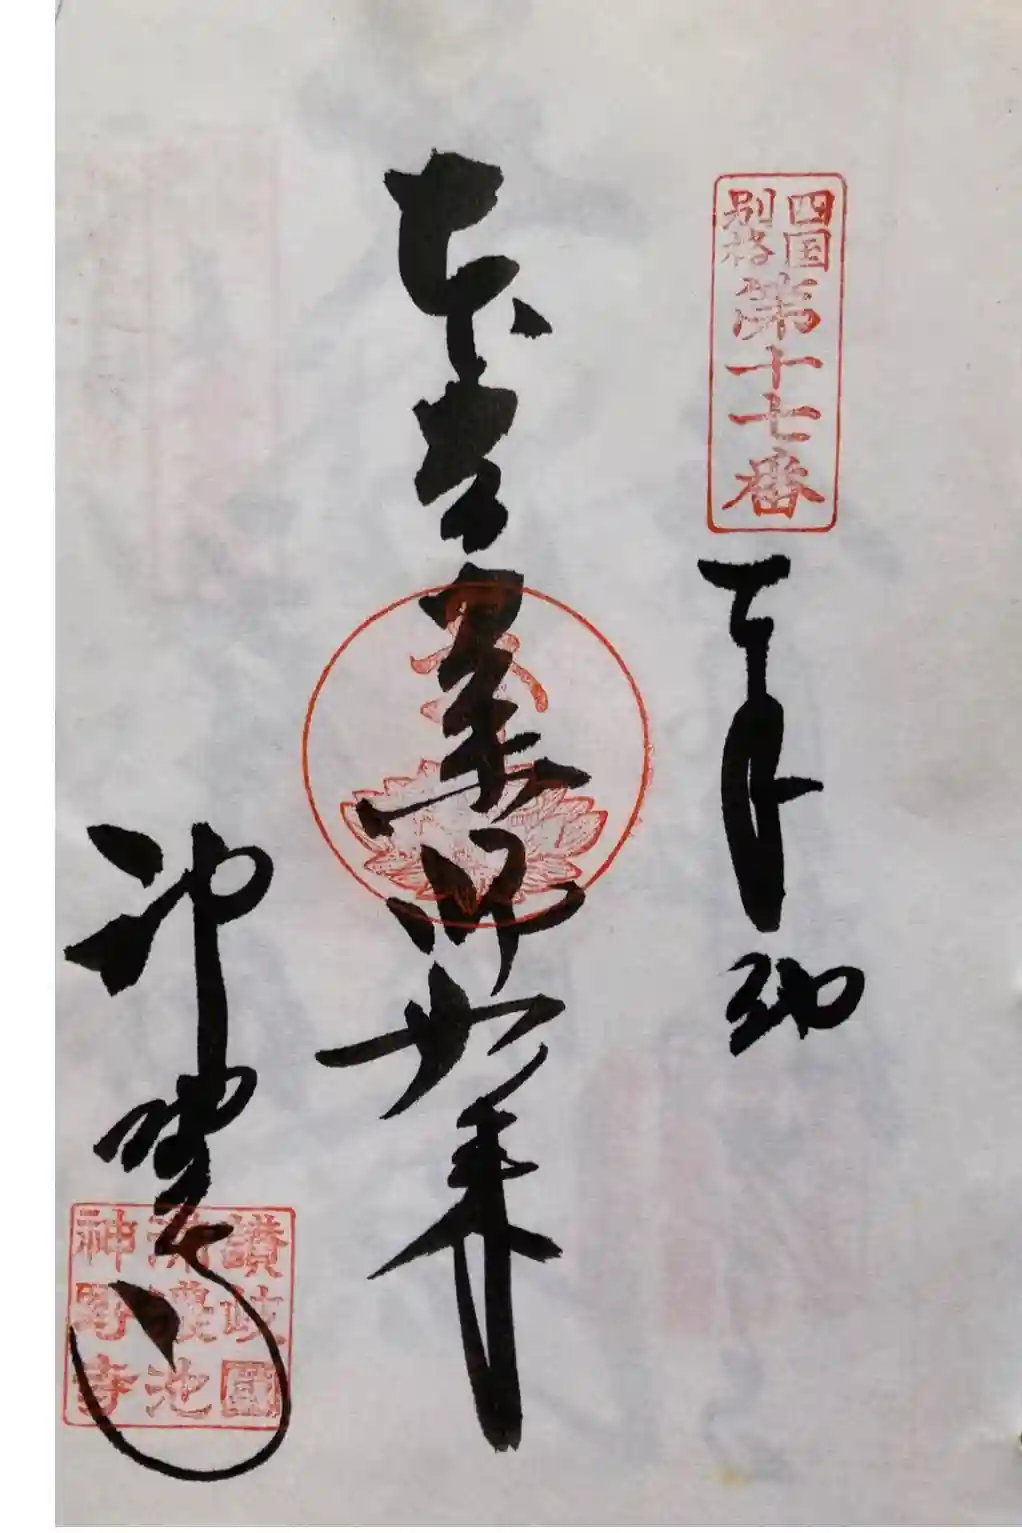 四国
別格
第十七番
奉納
本尊薬師如来
神野寺
讃岐國
満濃池
神野寺